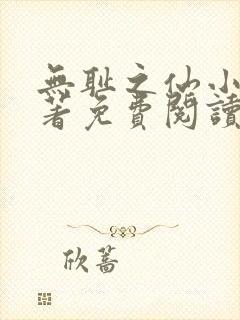 無耻之仙小
著免費閱讀
欣蕎